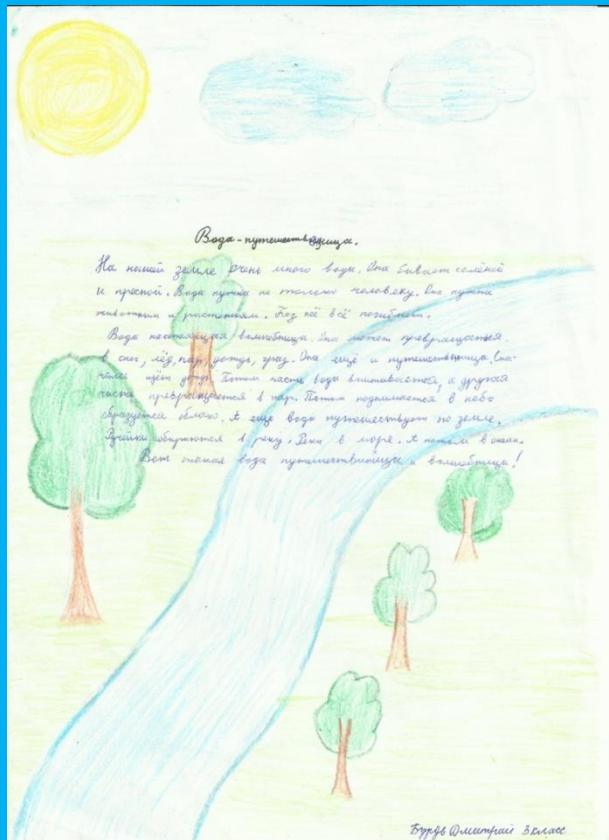 Вода-путешественница.
На нашей земле очень много воды. Она бывает солёной
и пресной. Вода нужна не только человеку. Она нужна
животным и растениям. Без неё всё погибнет.
Вода настоящая волшебница. Она может превращаться
в снег, лёд, пар, дождь, град. Она ещё и путешественница. Сна-
чала идёт дождь. Потом часть воды впитывается, а другая
часть превращается в пар. Потом поднимается в небо
образуется облако. А ещё вода путешествует по земле.
Ручейки собираются в реку. Реки в моря. А потом в океан.
Вот такая вода и волшебница!
Бурдь Дмитрий 3 класс